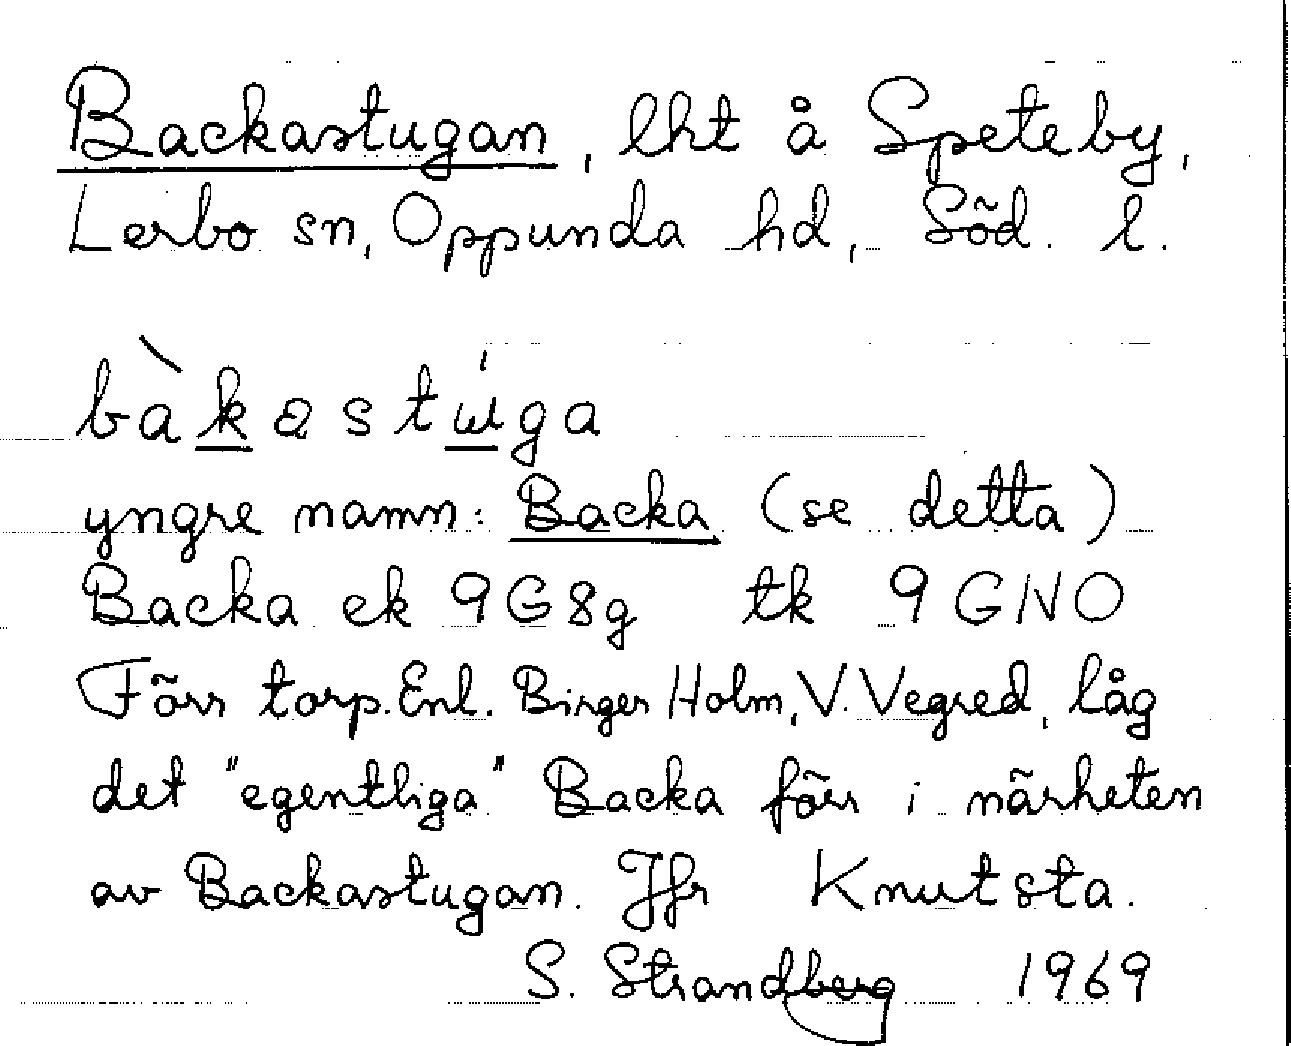 Backastugan, lht å Speteby,
Lerbo sn, Oppunda hd, Söd. l.
bàkastẃga
yngre namn: Backa (se detta)
Backa ek 9G8g tk 9 GNO
Förr torp. Enl. Birger Holm, V. Vegred, låg
det "egentliga" Backa förr i närheten
av Backastugan. Jfr Knutsta.
S. Strandberg 1969